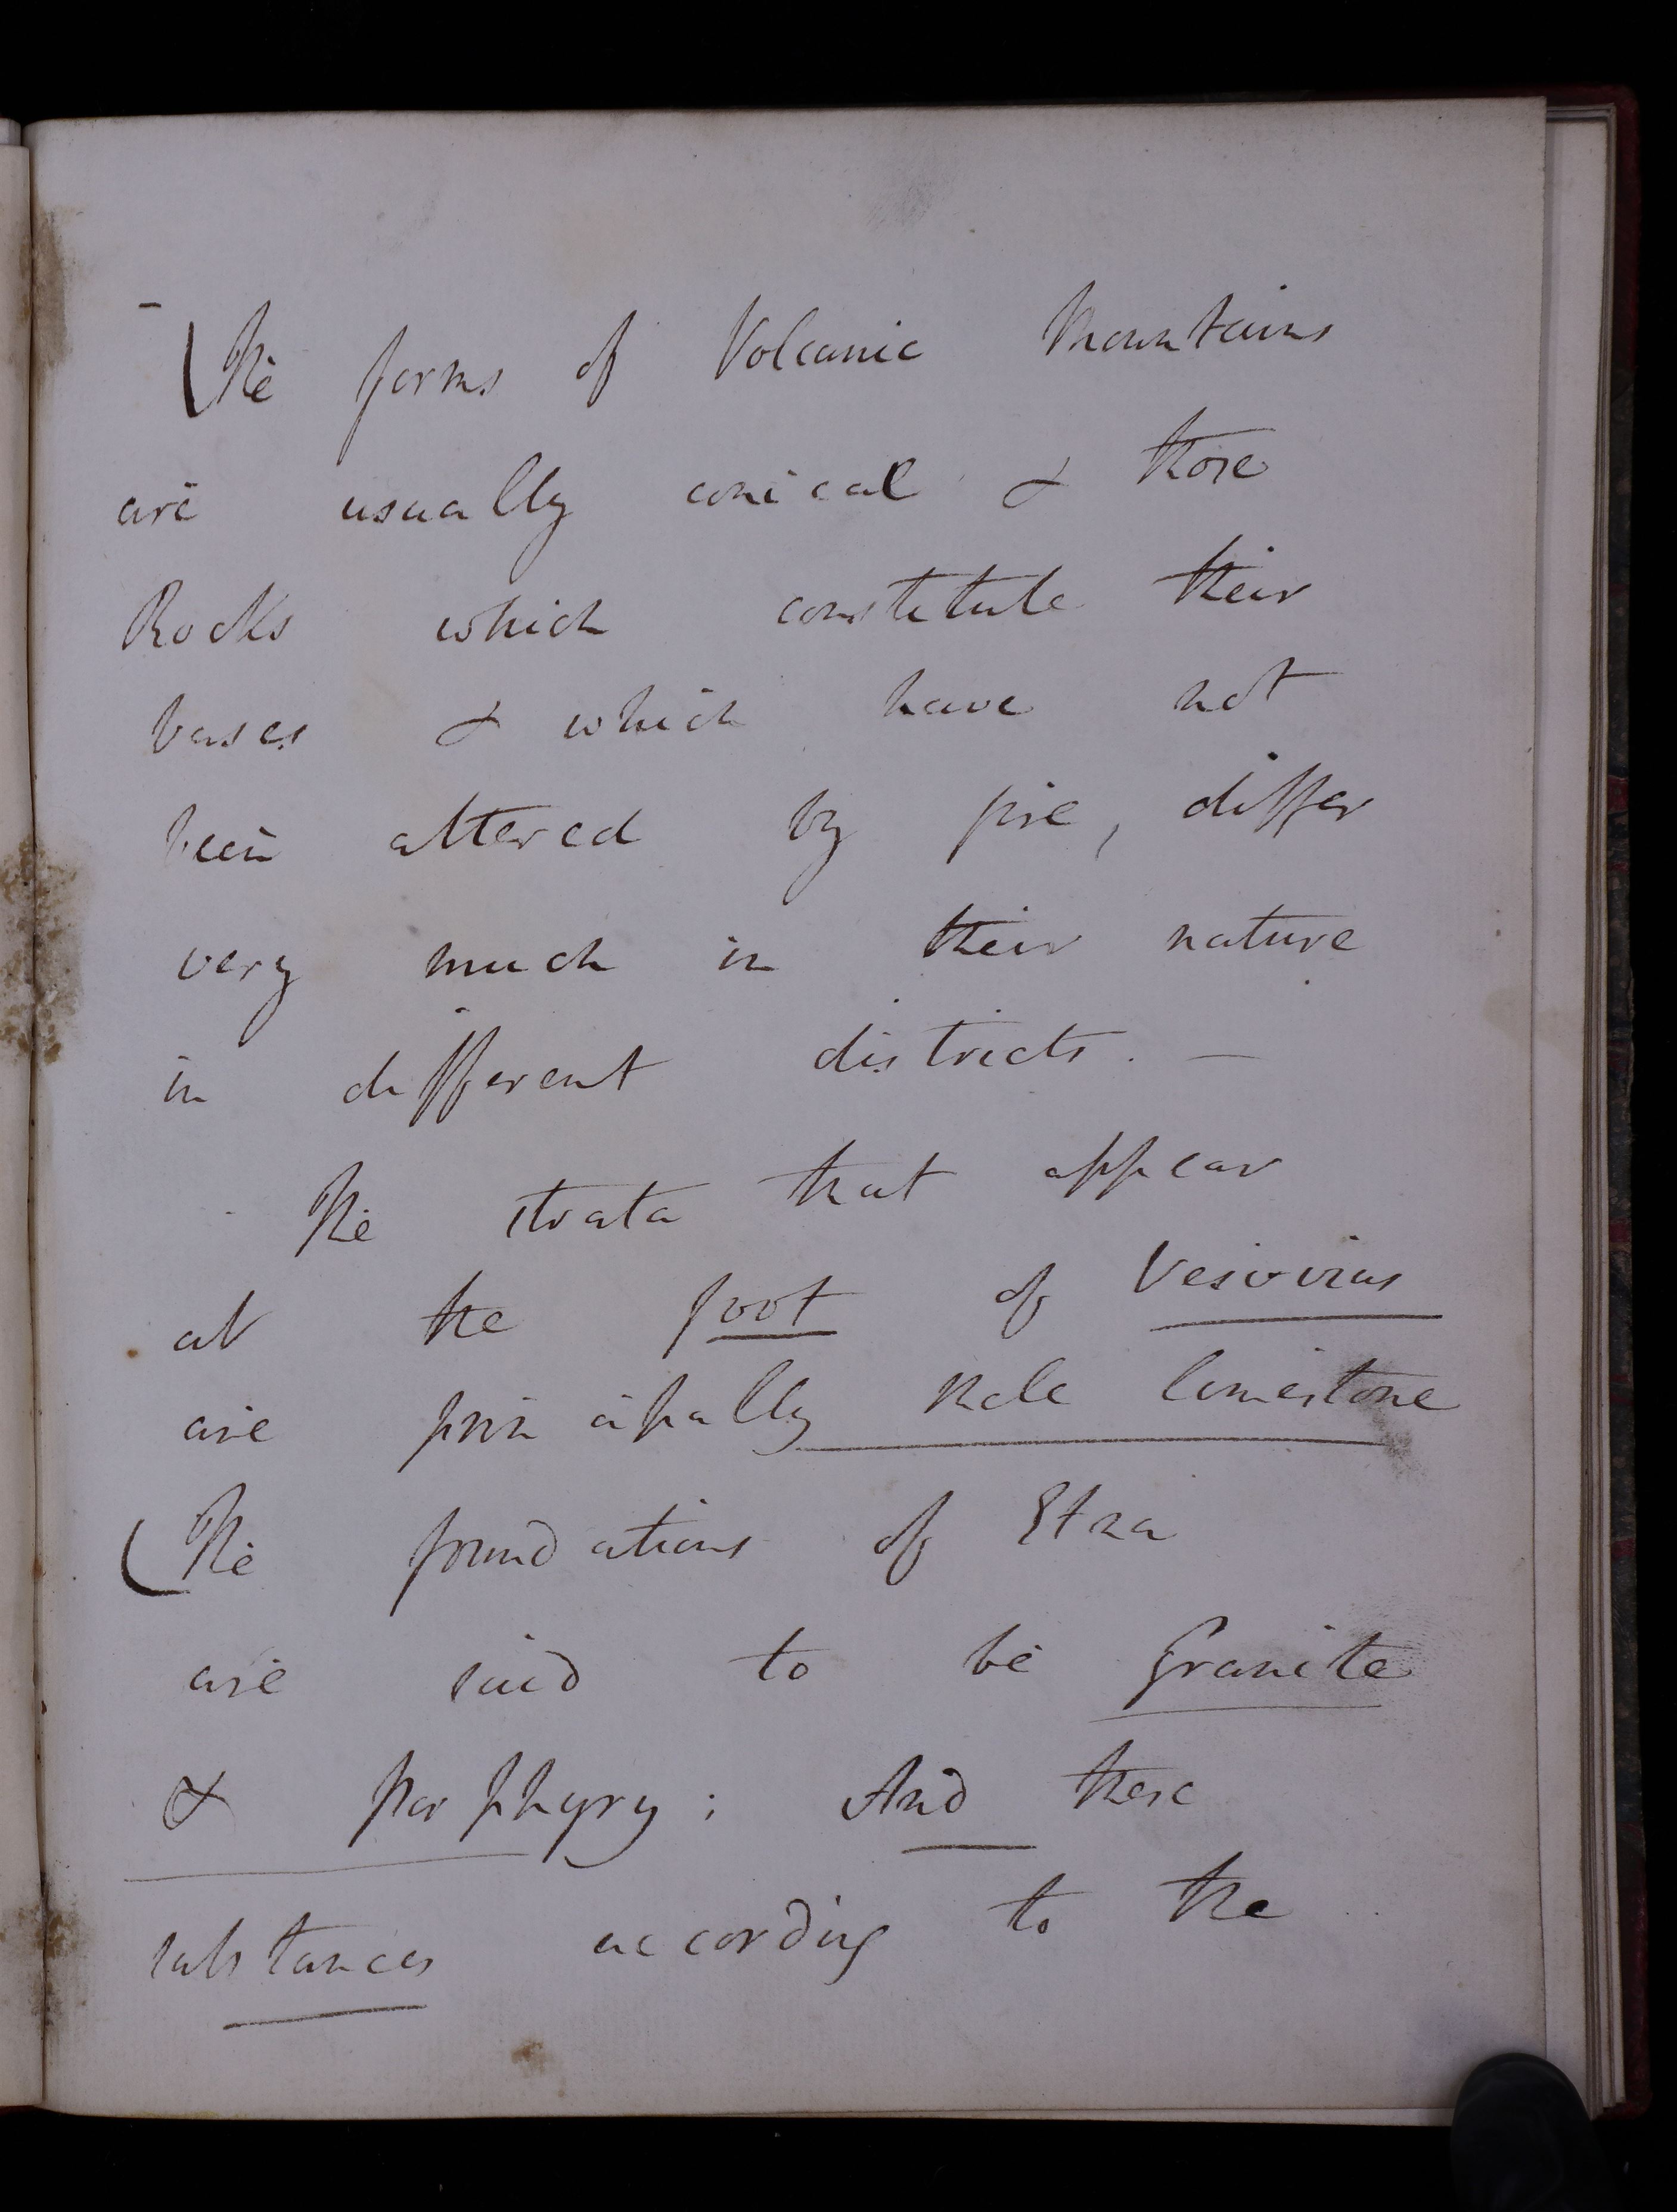 - (The forms of Volcanic Mountains
are usually conical & those
Rocks which constitute their
bases & which have not
been altered by fire, differ
very much in their nature
in different districts. —
The strata that appear
at the foot of Vesuvius
are principally shale limestone
(The foundations of Etna
are said to be Granite
& porphyry; And these
substances according to the